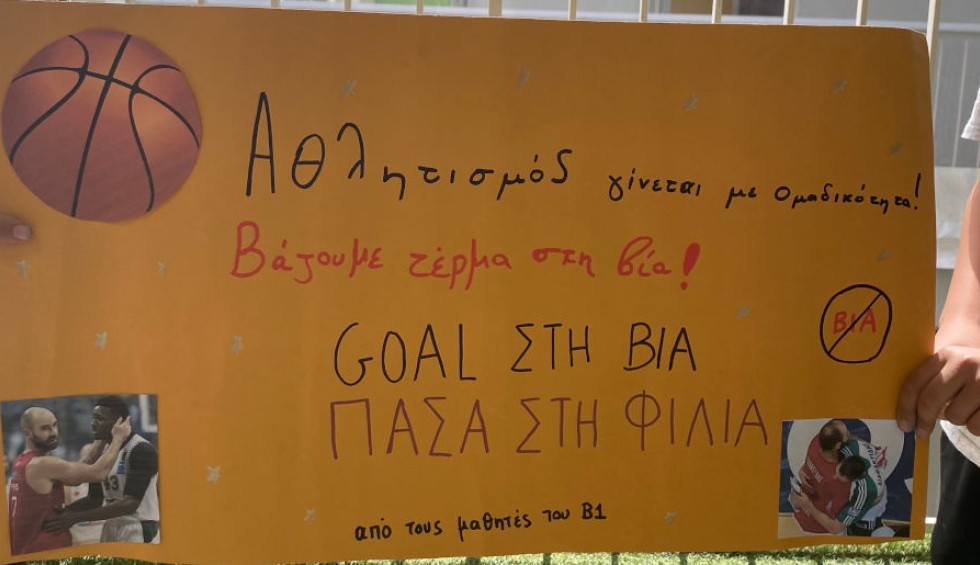 Αθλητισμός γίνεται με ομαδικότητα!
Βάζουμε τέρμα στη βία!
ΒΙΑ
GOAL ΣΤΗ ΒΙΑ
ΠΑΣΑ ΣΤΗ ΦΙΛΙΑ
από τους μαθητές του Β1